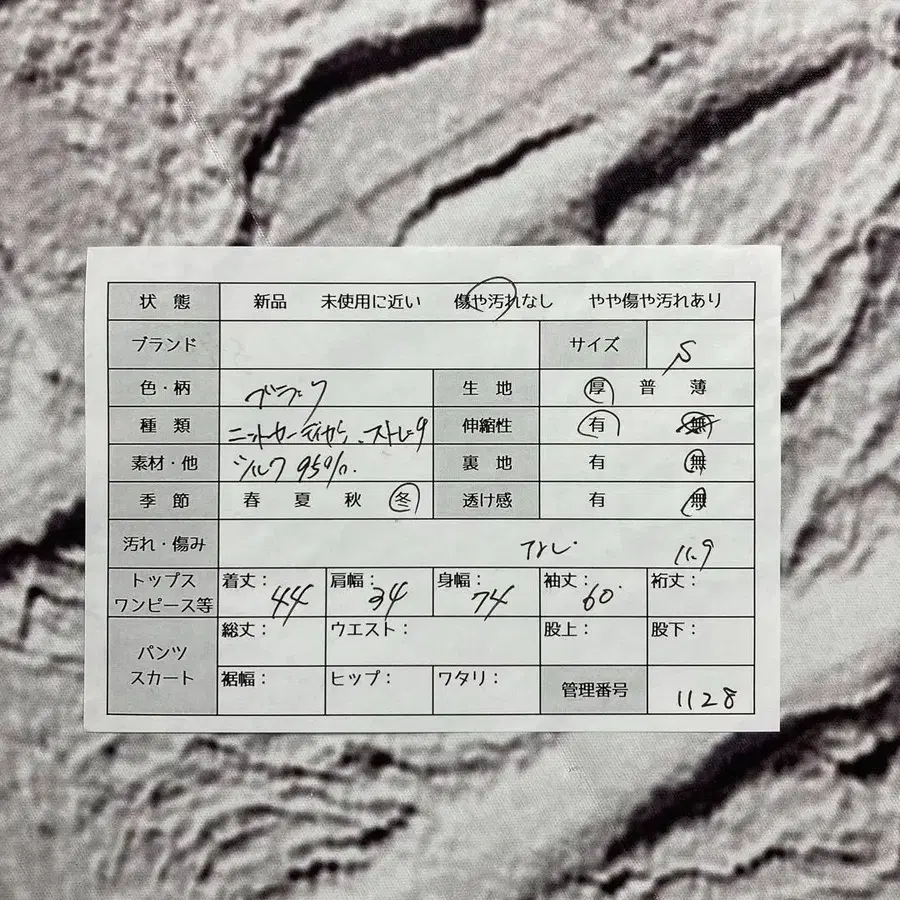 状態 新品 未使用に近い 傷や汚れなし やや傷や汚れあり
ブランド サイズ S
色・柄 ブラック 生地 厚 普 薄
種類 ニットカーディガン、ストレッチ 伸縮性 有 無
素材・他 シルク95%. 裏地 有 無
季節 春 夏 秋 冬 透け感 有 無
汚れ・傷み なし 11.9
トップス ワンピース等 着丈：44 肩幅：34 身幅：74 袖丈：60. 裄丈：
パンツ スカート 総丈： ウエスト： 股上： 股下：
裾幅： ヒップ： ワタリ： 管理番号 1128